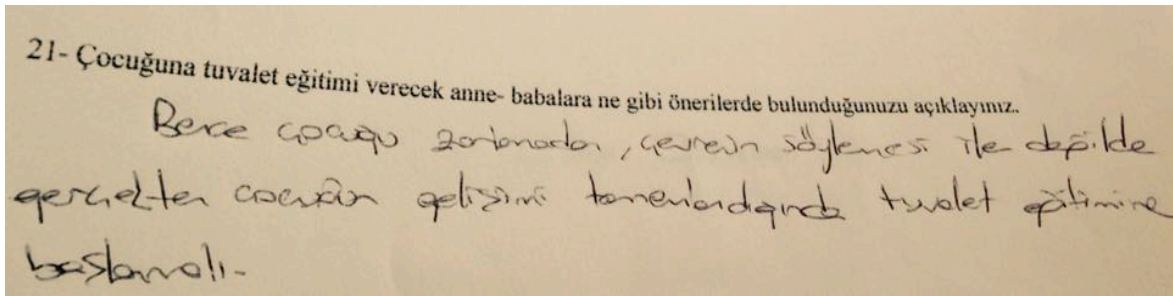 21- Çocuğuna tuvalet eğitimi verecek anne- babalara ne gibi önerilerde bulunduğunuzu açıklayınız.
Bence çocuğu zorlamadan, çevrenin söylemesi ile değilde
gerçekten çocuğun gelişimi tamamlandığında tuvalet eğitimine
başlamalı.